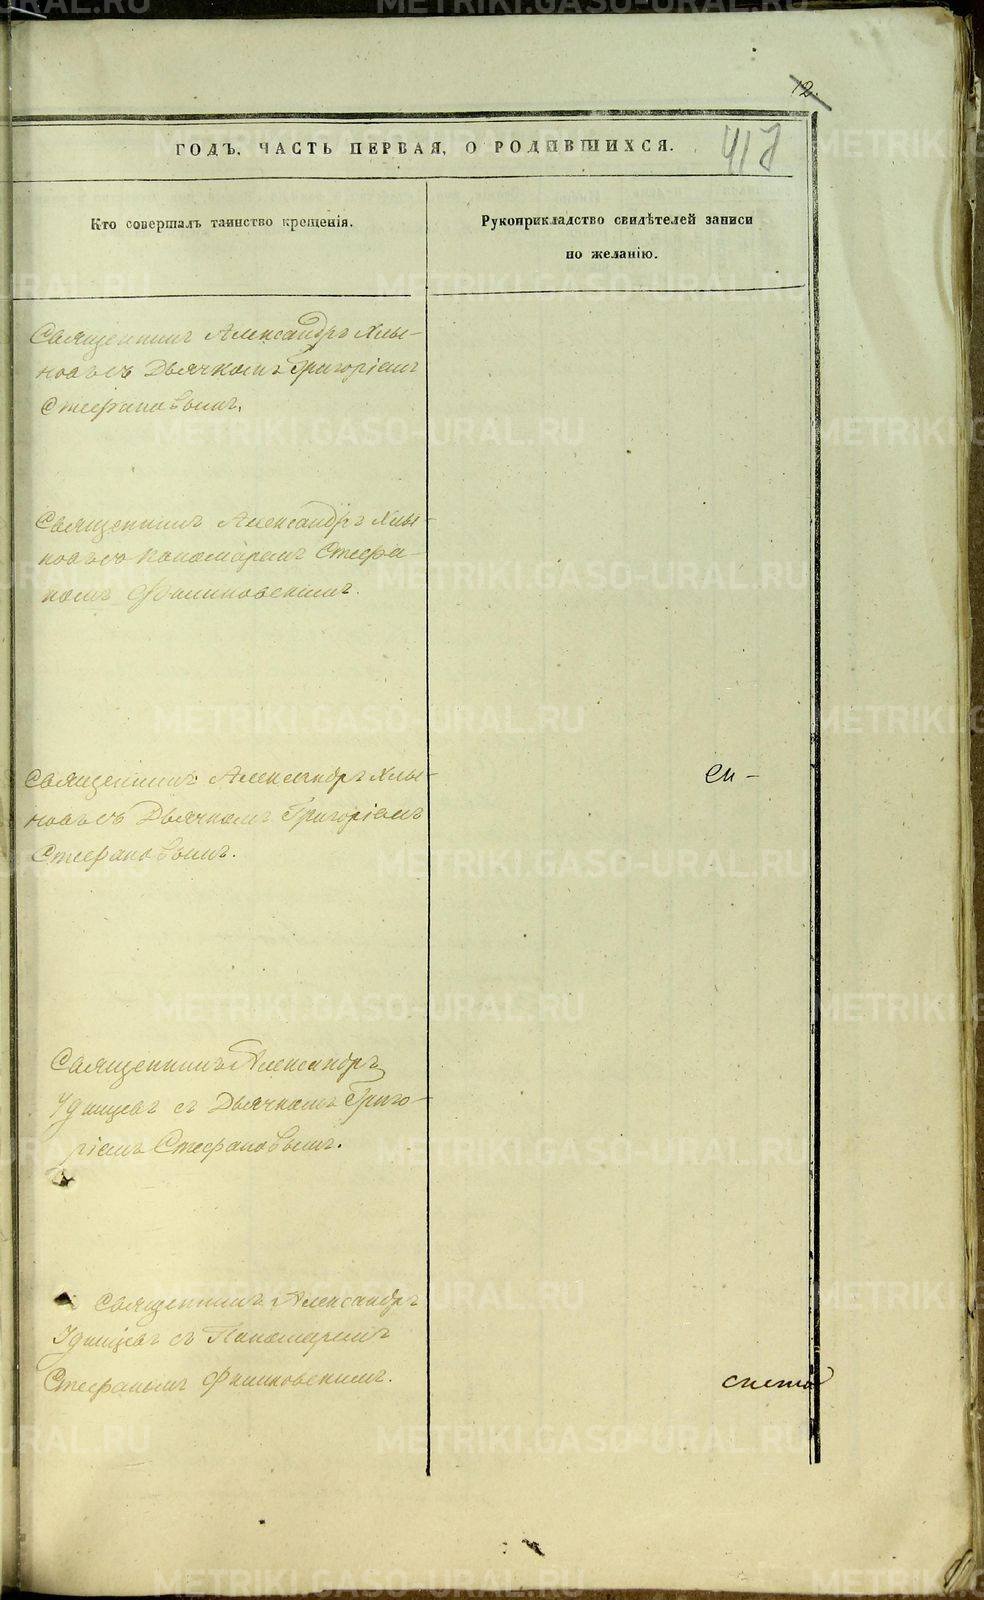 12.
417
ГОДЪ, ЧАСТЬ ПЕРВАЯ, О РОДИВШИХСЯ.
Кто совершалъ таинство крещенія.
Рукоприкладство свидѣтелей записи
по желанію.
Священникъ Александръ Хлы-
новъ съ Дьячкомъ Григоріемъ
Стефановымъ.
Священникъ Александръ Хлы-
новъ съ Пономаремъ Стефа-
номъ Филиновскимъ.
Священникъ Александръ Хлы-
новъ съ Дьячкомъ Григоріемъ
Стефановымъ.
Священникъ Александръ
Удинцевъ съ Дьячкомъ Григо-
ріемъ Стефановымъ.
Священникъ Александръ
Удинцевъ съ Пономаремъ
Стефаномъ Филиновскимъ.
METRIKI.GASO-URAL.RU